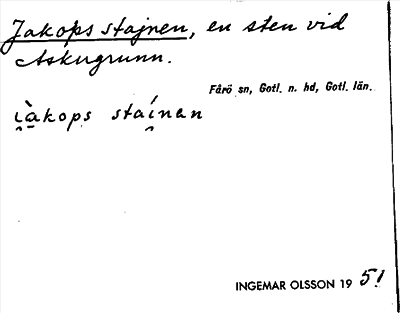 Jakops stajnen, en sten vid
Askugrunn.
Fårö sn, Gotl. n. hd, Gotl. län.
i̯àkops staí̯nen
INGEMAR OLSSON 1951